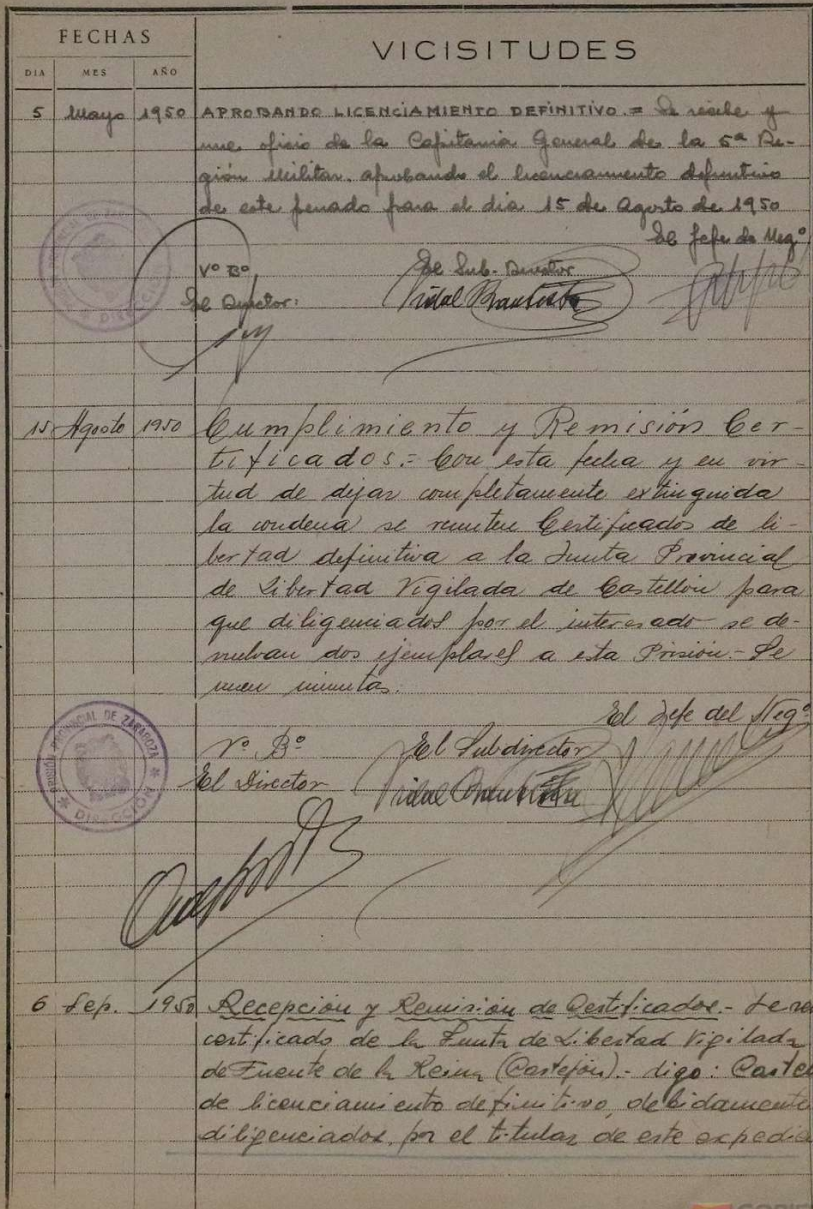 FECHAS
VICISITUDES
DIA MES AÑO
5 Mayo 1950 APROBANDO LICENCIAMIENTO DEFINITIVO.= Se recibe y
une oficio de la Capitania General de la 5ª Re-
gión Militar, aprobando el licenciamiento definitivo
de este penado para el dia 15 de Agosto de 1950
El Jefe de Negº
Vº Bº
El Sub-Director
El Director:
Vidal Bautista
15 Agosto 1950 Cumplimiento y Remisión Cer-
tificados.= Con esta fecha y en vir-
tud de dejar completamente extinguida
la condena se remiten Certificados de li-
bertad definitiva a la Junta Provincial
de Libertad Vigilada de Castellón para
que diligenciados por el interesado se de-
vuelvan dos ejemplares a esta Prisión.- Se
unen minutas.
El Jefe del Negº
Vº Bº
El Subdirector
El Director
Vidal Bautista
PRISIÓN PROVINCIAL DE ZARAGOZA
DIRECCIÓN
6 Sep. 1950 Recepción y Remisión de Certificados.- Se re
certificado de la Junta de Libertad Vigilada
de Fuente de la Reina (Castejón).- digo: Caste
de licenciamiento definitivo, debidamente
diligenciados, por el titular de este expedie